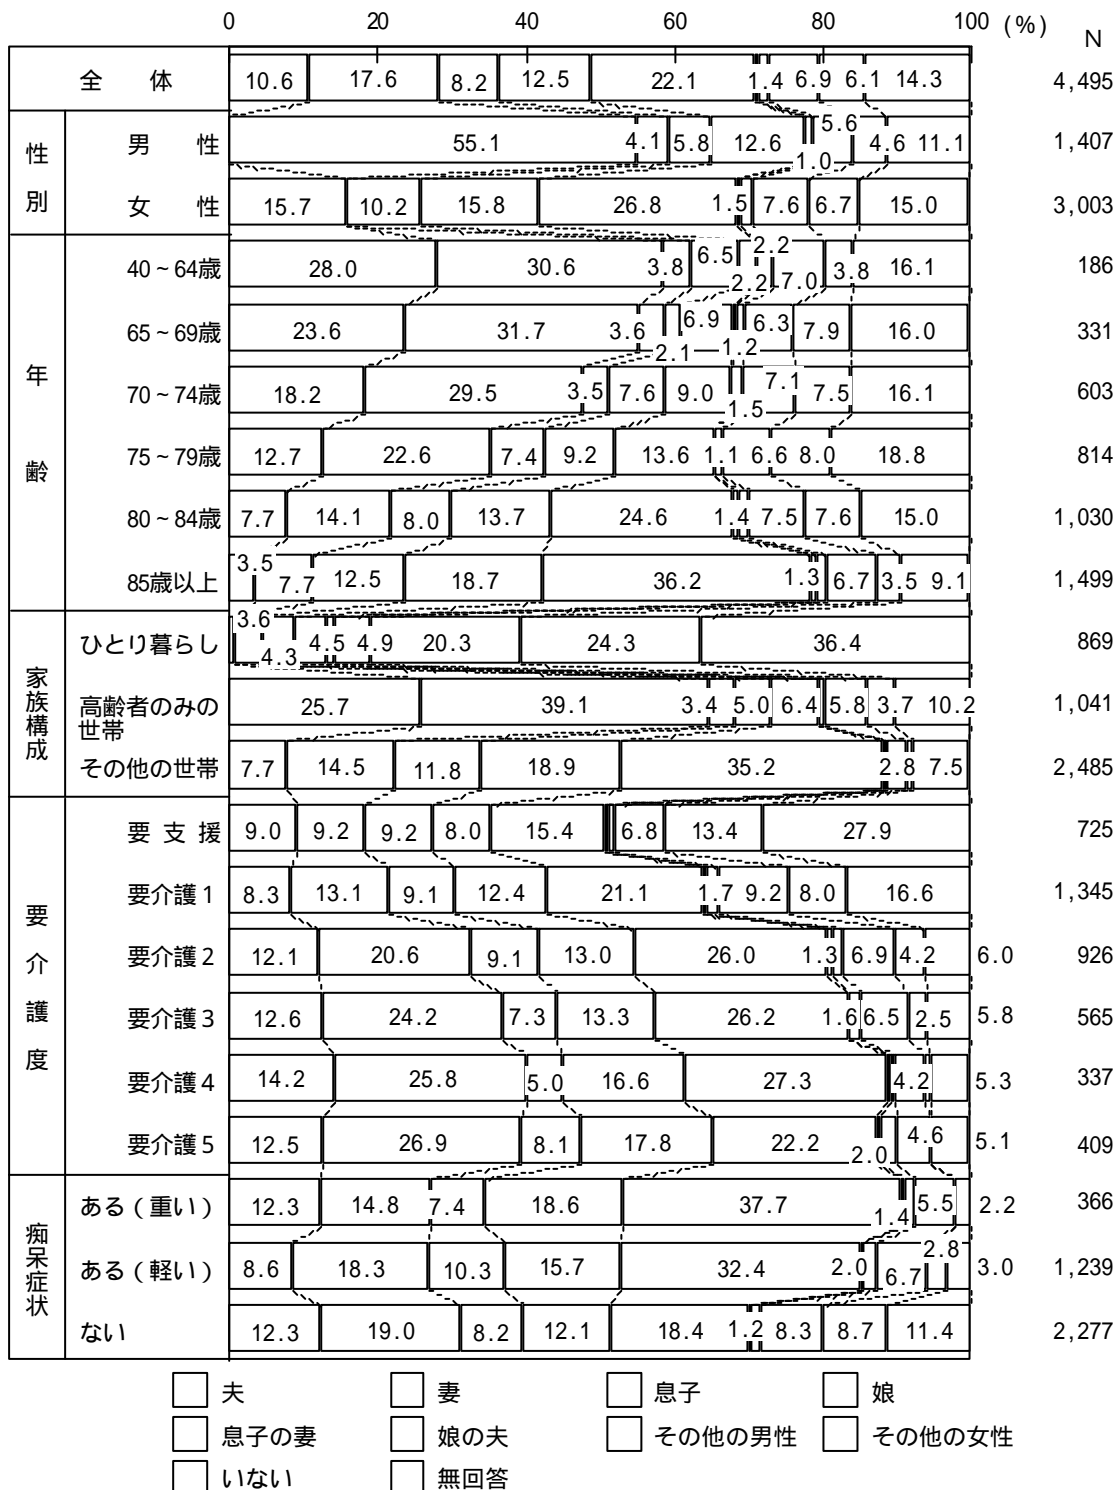 0 20 40 60 80 100 (%) N
全 体 10.6 17.6 8.2 12.5 22.1 1.4 6.9 6.1 14.3 4,495
性別
男 性 55.1 4.1 5.8 12.6 1.0 5.6 4.6 11.1 1,407
女 性 15.7 10.2 15.8 26.8 1.5 7.6 6.7 15.0 3,003
年齢
40~64歳 28.0 30.6 3.8 6.5 2.2 2.2 7.0 3.8 16.1 186
65~69歳 23.6 31.7 3.6 2.1 6.9 1.2 6.3 7.9 16.0 331
70~74歳 18.2 29.5 3.5 7.6 9.0 1.5 7.1 7.5 16.1 603
75~79歳 12.7 22.6 7.4 9.2 13.6 1.1 6.6 8.0 18.8 814
80~84歳 7.7 14.1 8.0 13.7 24.6 1.4 7.5 7.6 15.0 1,030
85歳以上 3.5 7.7 12.5 18.7 36.2 1.3 6.7 3.5 9.1 1,499
家族構成
ひとり暮らし 3.6 4.3 4.5 4.9 20.3 24.3 36.4 869
高齢者のみの
世帯 25.7 39.1 3.4 5.0 6.4 5.8 3.7 10.2 1,041
その他の世帯 7.7 14.5 11.8 18.9 35.2 2.8 7.5 2,485
要介護度
要 支 援 9.0 9.2 9.2 8.0 15.4 6.8 13.4 27.9 725
要介護1 8.3 13.1 9.1 12.4 21.1 1.7 9.2 8.0 16.6 1,345
要介護2 12.1 20.6 9.1 13.0 26.0 1.3 6.9 4.2 6.0 926
要介護3 12.6 24.2 7.3 13.3 26.2 1.6 6.5 2.5 5.8 565
要介護4 14.2 25.8 5.0 16.6 27.3 4.2 5.3 337
要介護5 12.5 26.9 8.1 17.8 22.2 2.0 4.6 5.1 409
痴呆症状
ある(重い) 12.3 14.8 7.4 18.6 37.7 1.4 5.5 2.2 366
ある(軽い) 8.6 18.3 10.3 15.7 32.4 2.0 6.7 2.8 3.0 1,239
ない 12.3 19.0 8.2 12.1 18.4 1.2 8.3 8.7 11.4 2,277
夫 妻 息子 娘
息子の妻 娘の夫 その他の男性 その他の女性
いない 無回答